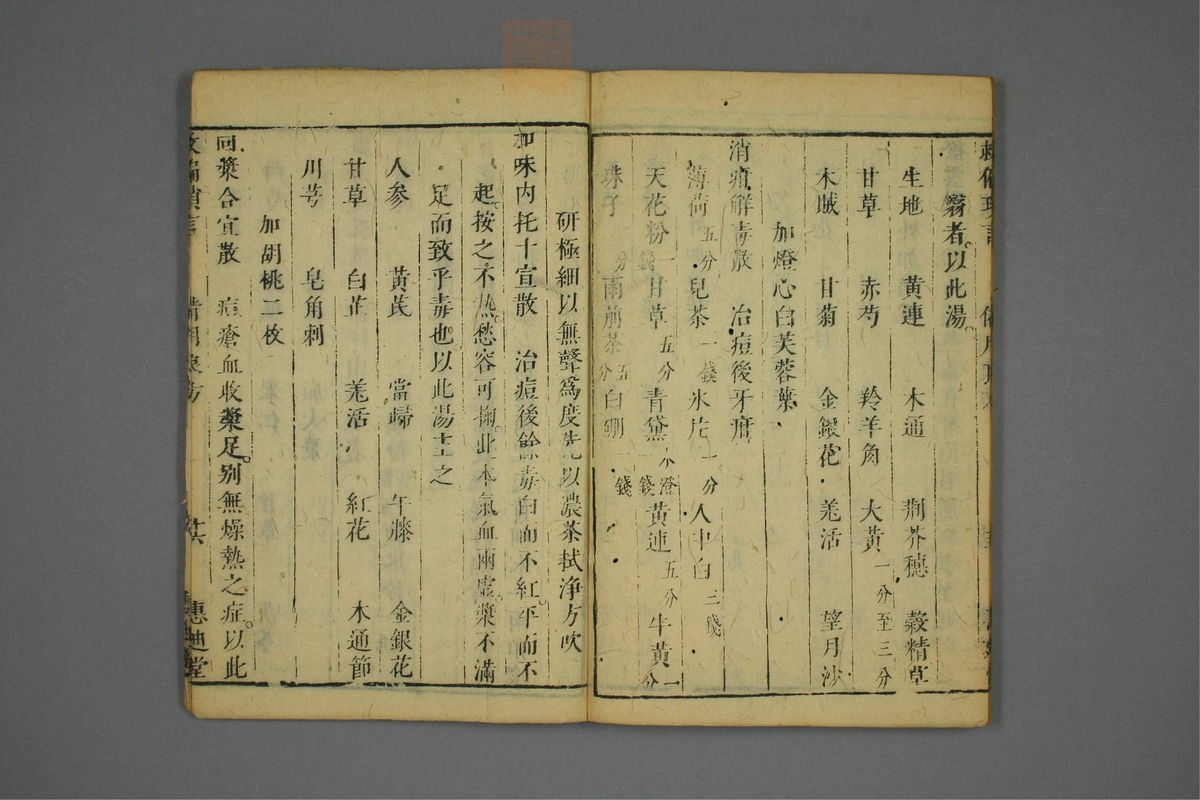 翳者以此湯
生地 黄連 木通 荆芥穗 穀精草
甘草 赤芍 羚羊角 大黄一分至三分
木賊 甘菊 金銀花 羗活 望月沙
加燈心白芙蓉葉
消疳解毒散 治痘後牙疳
薄荷五分 兒茶一錢 氷片一分 人中白三錢
天花粉一錢 甘草五分 青黛水澄一錢 黄連五分 牛黄一分
珠子分 雨前茶五分 白硼一錢
研極細以無聲爲度先以濃茶拭浄方吹
加味内托十宣散 治痘後餘毒白而不紅平而不
起按之不热愁容可掬此本氣血兩虛漿不滿
足而致乎毒也以此湯主之
人參 黄芪 當歸 牛膝 金銀花
甘草 白芷 羗活 紅花 木通節
川芎 皂角刺
加胡桃二枚
回漿合宣散 痘瘡血收漿足别無燥熱之症以此